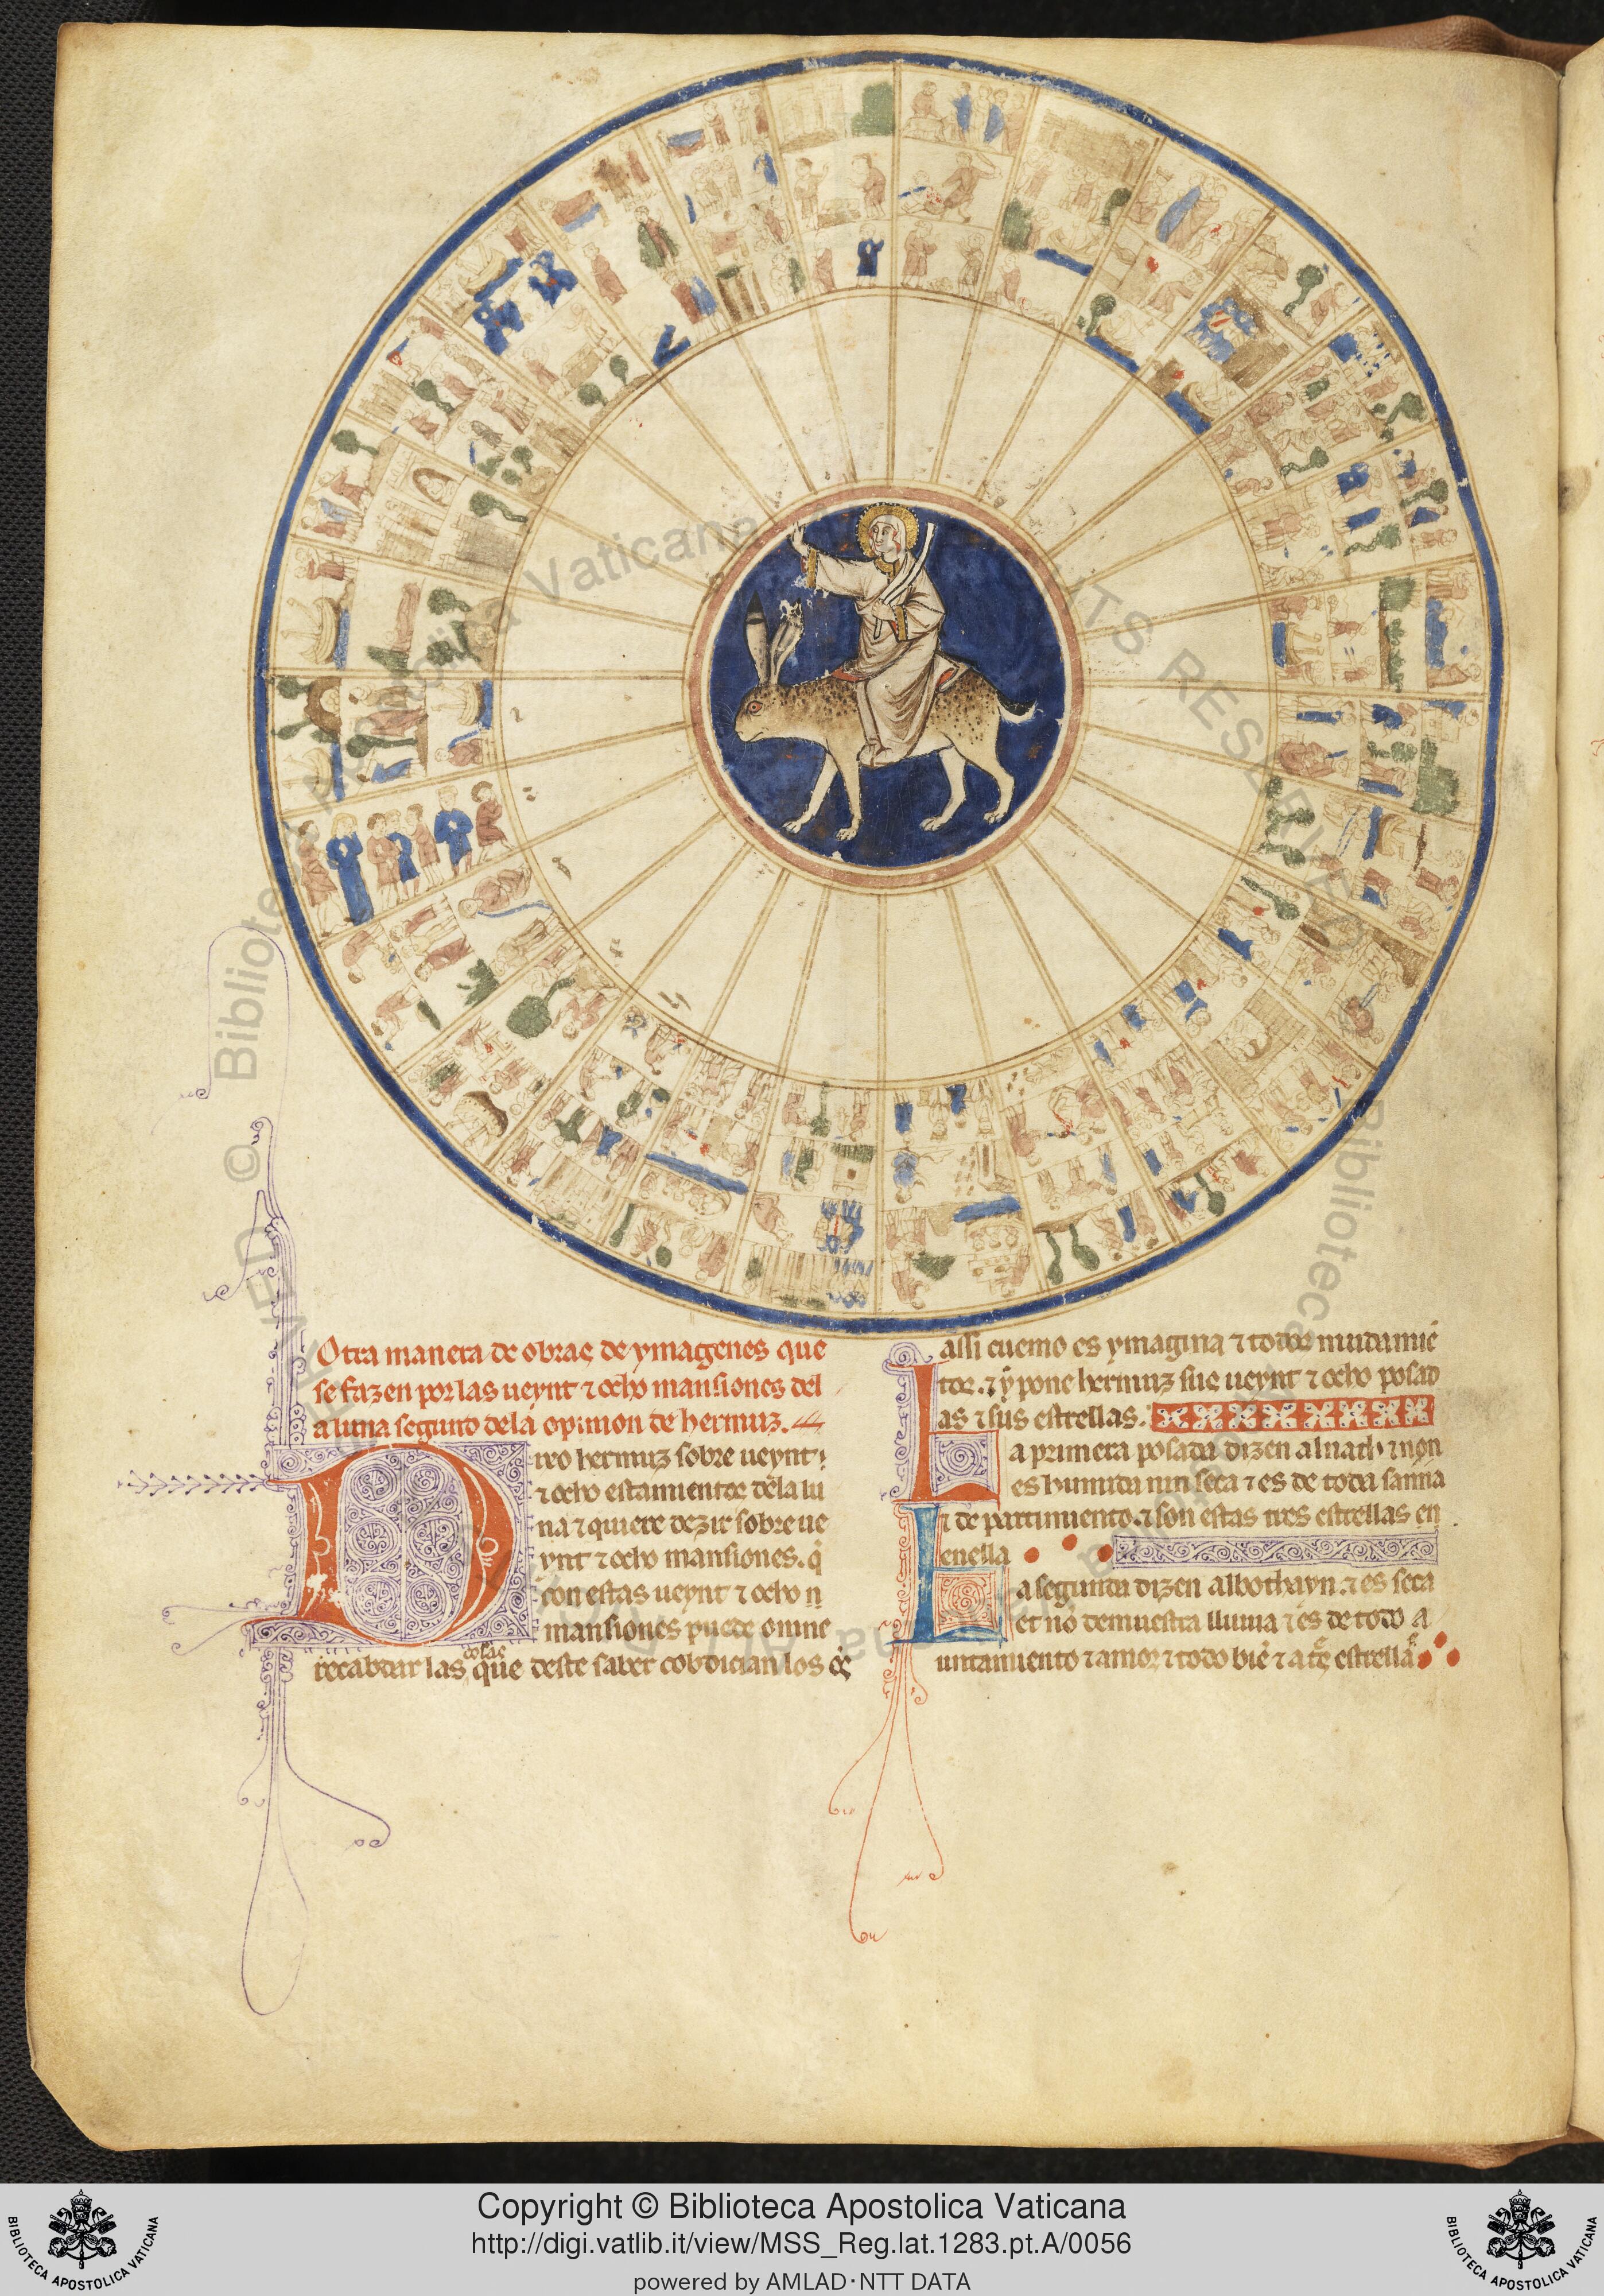 Otra manera de obras de ymagenes que
se fazen por las ueynt ⁊ ocho mansiones del
a luna segund dela opinion de hermuz.
Dixo hermuz sobre ueynt
⁊ ocho estamientos dela lu
na ⁊ quiere dezir sobre ue
ynt ⁊ ocho mansiones. q̇
con estas ueynt ⁊ ocho
mansiones puede omne
cosas
recabdar las que deste saber cobdician los
assi cuemo es ymagina ⁊ todos mudamiē
tos. ⁊ ẏ pone hermuz sus ueynt ⁊ ocho posad
as ⁊ sus estrellas.
La primera posada dizen alnath ⁊ non
es humida nin seca ⁊ es de toda sanna
⁊ de partimiento. ⁊ son estas tres estrellas en
enella
La segunda dizen albothayn. ⁊ es seca
et nō demuestra lluuia ⁊ es de todo a
iuntamiento ⁊ amor ⁊ todo biē ⁊ a estrellas
© Biblioteca Apostolica Vaticana
RIGHTS RESERVED
Copyright © Biblioteca Apostolica Vaticana
http://digi.vatlib.it/view/MSS_Reg.lat.1283.pt.A/0056
powered by AMLAD·NTT DATA
BIBLIOTECA APOSTOLICA VATICANA
BIBLIOTECA APOSTOLICA VATICANA